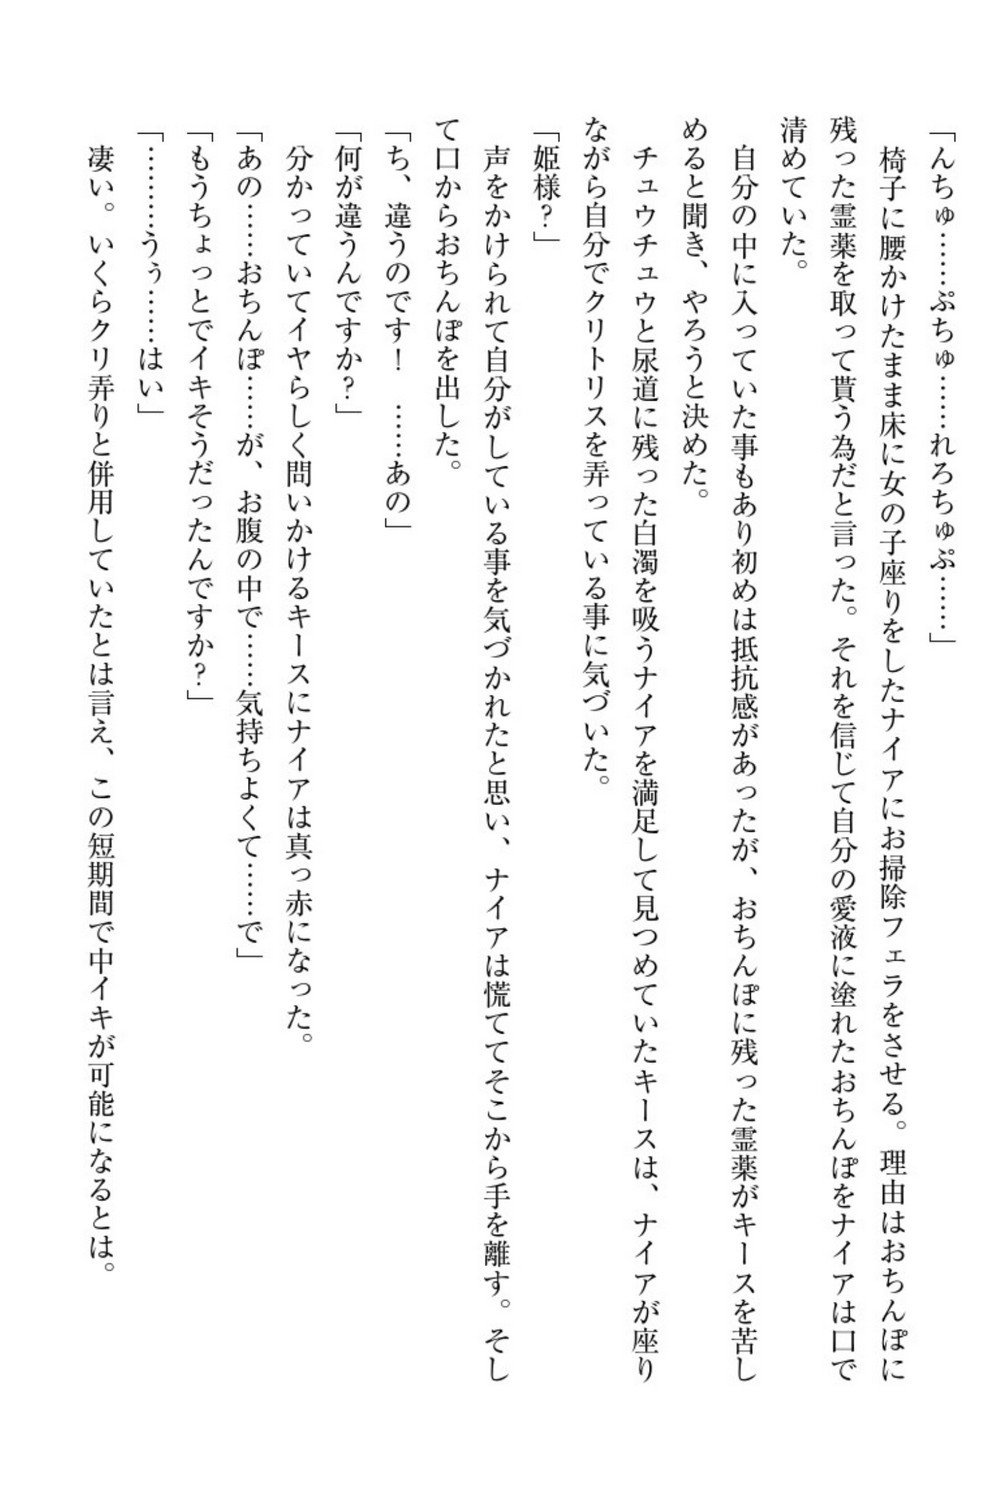 「んちゅ……ぷちゅ……れろちゅぷ……」
　椅子に腰かけたまま床に女の子座りをしたナイアにお掃除フェラをさせる。理由はおちんぽに
残った霊薬を取って貰う為だと言った。それを信じて自分の愛液に塗れたおちんぽをナイアは口で
清めていた。
　自分の中に入っていた事もあり初めは抵抗感があったが、おちんぽに残った霊薬がキースを苦し
めると聞き、やろうと決めた。
　チュウチュウと尿道に残った白濁を吸うナイアを満足して見つめていたキースは、ナイアが座り
ながら自分でクリトリスを弄っている事に気づいた。
「姫様？」
　声をかけられて自分がしている事を気づかれたと思い、ナイアは慌ててそこから手を離す。そし
て口からおちんぽを出した。
「ち、違うのです！　……あの」
「何が違うんですか？」
　分かっていてイヤらしく問いかけるキースにナイアは真っ赤になった。
「あの……おちんぽ……が、お腹の中で……気持ちよくて……で」
「もうちょっとでイキそうだったんですか？」
「………うぅ……はい」
　凄い。いくらクリ弄りと併用していたとは言え、この短期間で中イキが可能になるとは。